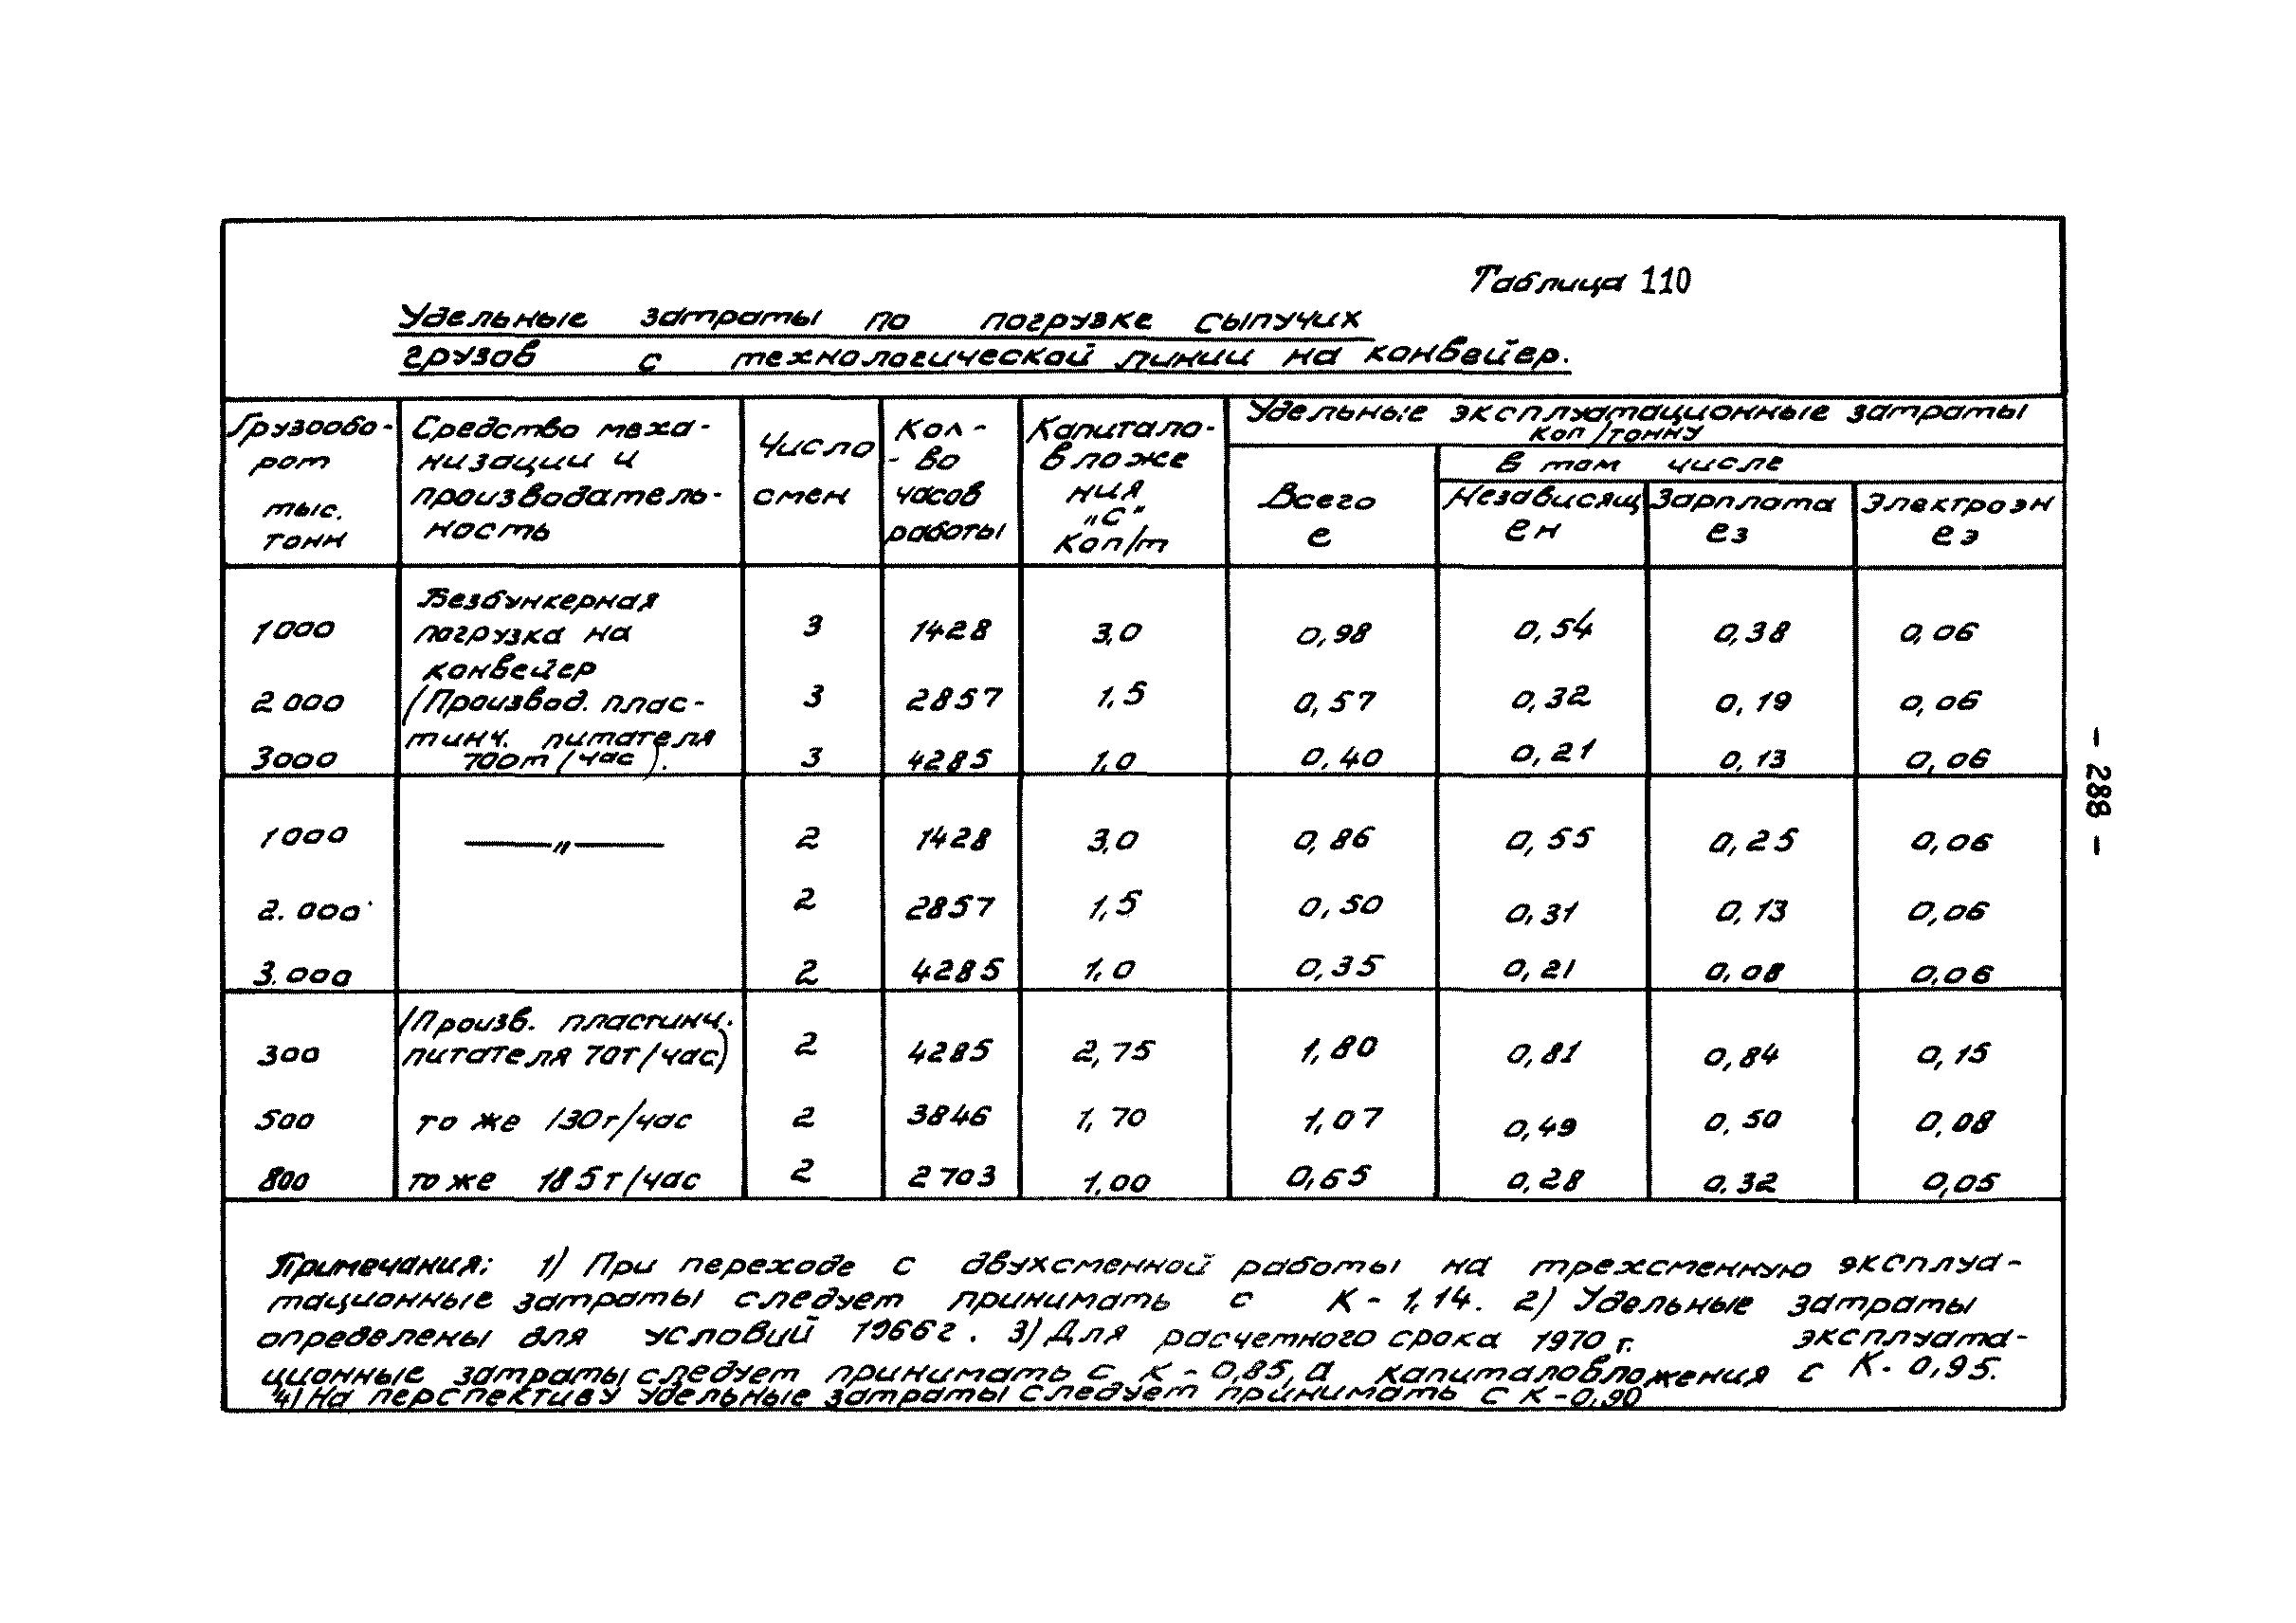 Таблица 110
Удельные затраты по погрузке сыпучих
грузов с технологической линии на конвейер.
Грузообо-
рот
тыс.
тонн
Средство меха-
низации и
производатель-
ность
Число
смен
Кол-
-во
часов
работы
Капитало-
вложе
ния
„С"
коп/т
Удельные эксплуатационные затраты
коп/тонну
Всего
е
в том числе
Независящ
ен
Зарплата
ез
Электроэн
еэ
Безбункерная
1000 погрузка на 3 1428 3,0 0,98 0,54 0,38 0,06
конвейер
2000 (Производ. плас- 3 2857 1,5 0,57 0,32 0,19 0,06
тинч. питателя
3000 700т/час). 3 4285 1,0 0,40 0,21 0,13 0,06
1000 —„— 2 1428 3,0 0,86 0,55 0,25 0,06
2.000 2 2857 1,5 0,50 0,31 0,13 0,06
3.000 2 4285 1,0 0,35 0,21 0,08 0,06
(Произв. пластинч.
300 питателя 70т/час) 2 4285 2,75 1,80 0,81 0,84 0,15
500 то же 130т/час 2 3846 1,70 1,07 0,49 0,50 0,08
800 то же 185т/час 2 2703 1,00 0,65 0,28 0.32 0,05
Примечания: 1) При переходе с двухсменной работы на трехсменную эксплуа-
тационные затраты следует принимать с К - 1,14. 2) Удельные затраты
определены для условий 1966г. 3) Для расчетного срока 1970 г. эксплуата-
ционные затраты следует принимать с К - 0,85, а капиталовложения с К- 0,95.
4) На перспективу удельные затраты следует принимать с К - 0,90
- 288 -